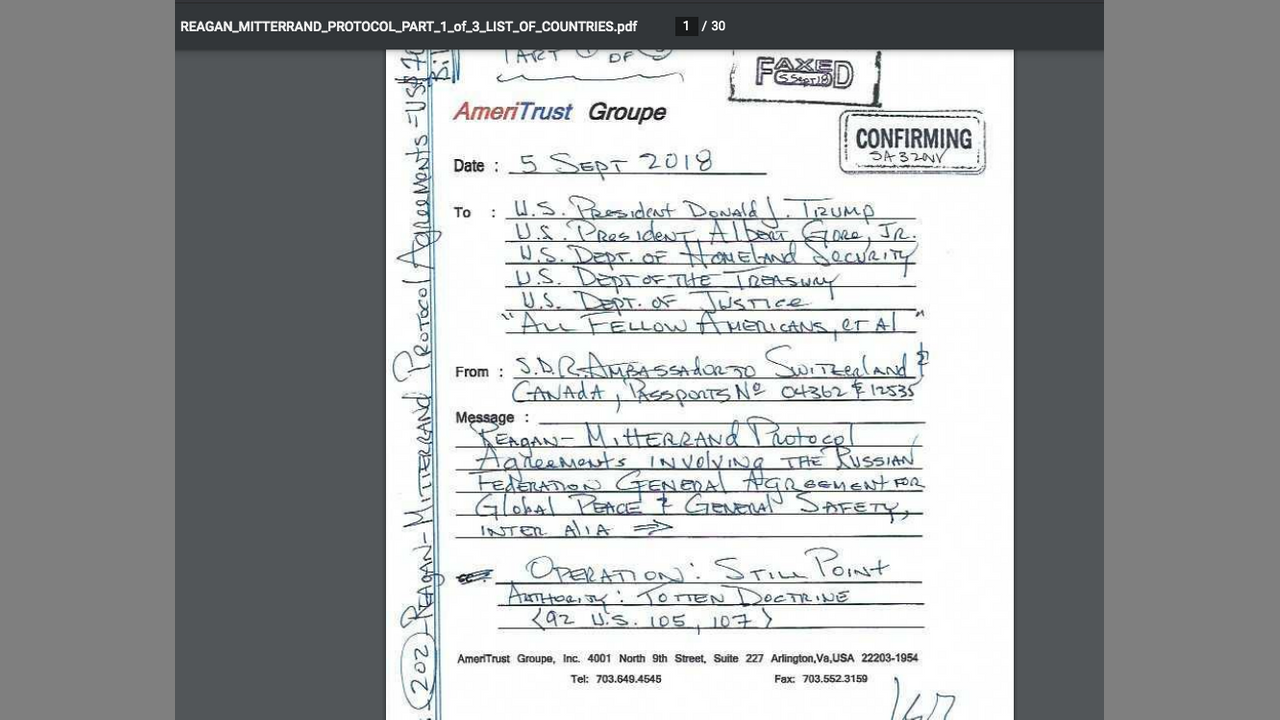 REAGAN_MITTERRAND_PROTOCOL_PART_1_of_3_LIST_OF_COUNTRIES.pdf 1 / 30
PART 1 OF 3
FAXED
5 Sept 18
AmeriTrust Groupe
CONFIRMING
SA32NV
Date : 5 SEPT 2018
To : U.S. President Donald J. Trump
U.S. President Albert Gore, Jr.
U.S. Dept. of Homeland Security
U.S. Dept of the Treasury
U.S. Dept. of Justice
"All Fellow Americans, et al"
From : S.D.R. Ambassador to Switzerland &
Canada, Passports Nº 04362 & 12535
Message :
Reagan-Mitterrand Protocol
Agreements involving the Russian
Federation General Agreement for
Global Peace & General Safety,
inter alia ⇒
Operation: Still Point
Authority: Totten Doctrine
<92 U.S. 105, 107>
AmeriTrust Groupe, Inc. 4001 North 9th Street, Suite 227 Arlington,Va,USA 22203-1954
Tel: 703.649.4545 Fax: 703.552.3159
202 Reagan-Mitterrand Protocol Agreements = US$